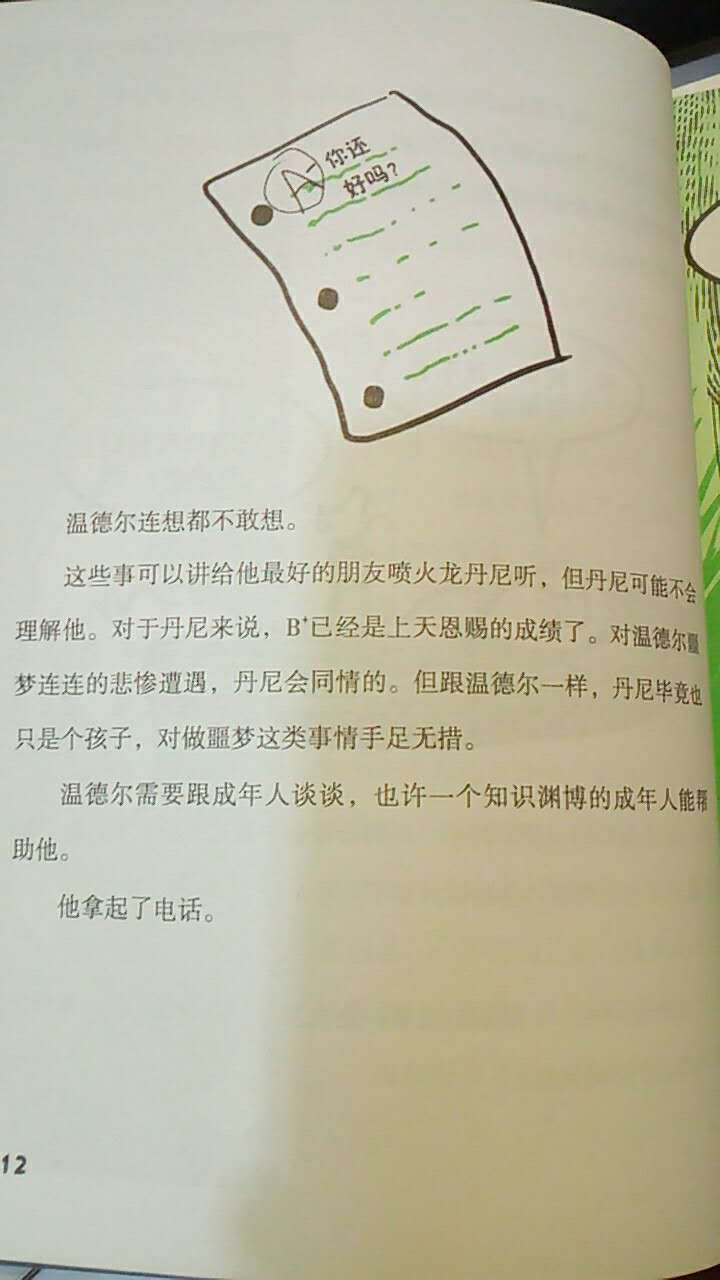 A- 你还
好吗?
温德尔连想都不敢想。
这些事可以讲给他最好的朋友喷火龙丹尼听，但丹尼可能不会
理解他。对于丹尼来说，B⁺已经是上天恩赐的成绩了。对温德尔噩
梦连连的悲惨遭遇，丹尼会同情的。但跟温德尔一样，丹尼毕竟也
只是个孩子，对做噩梦这类事情手足无措。
温德尔需要跟成年人谈谈，也许一个知识渊博的成年人能帮
助他。
他拿起了电话。
12